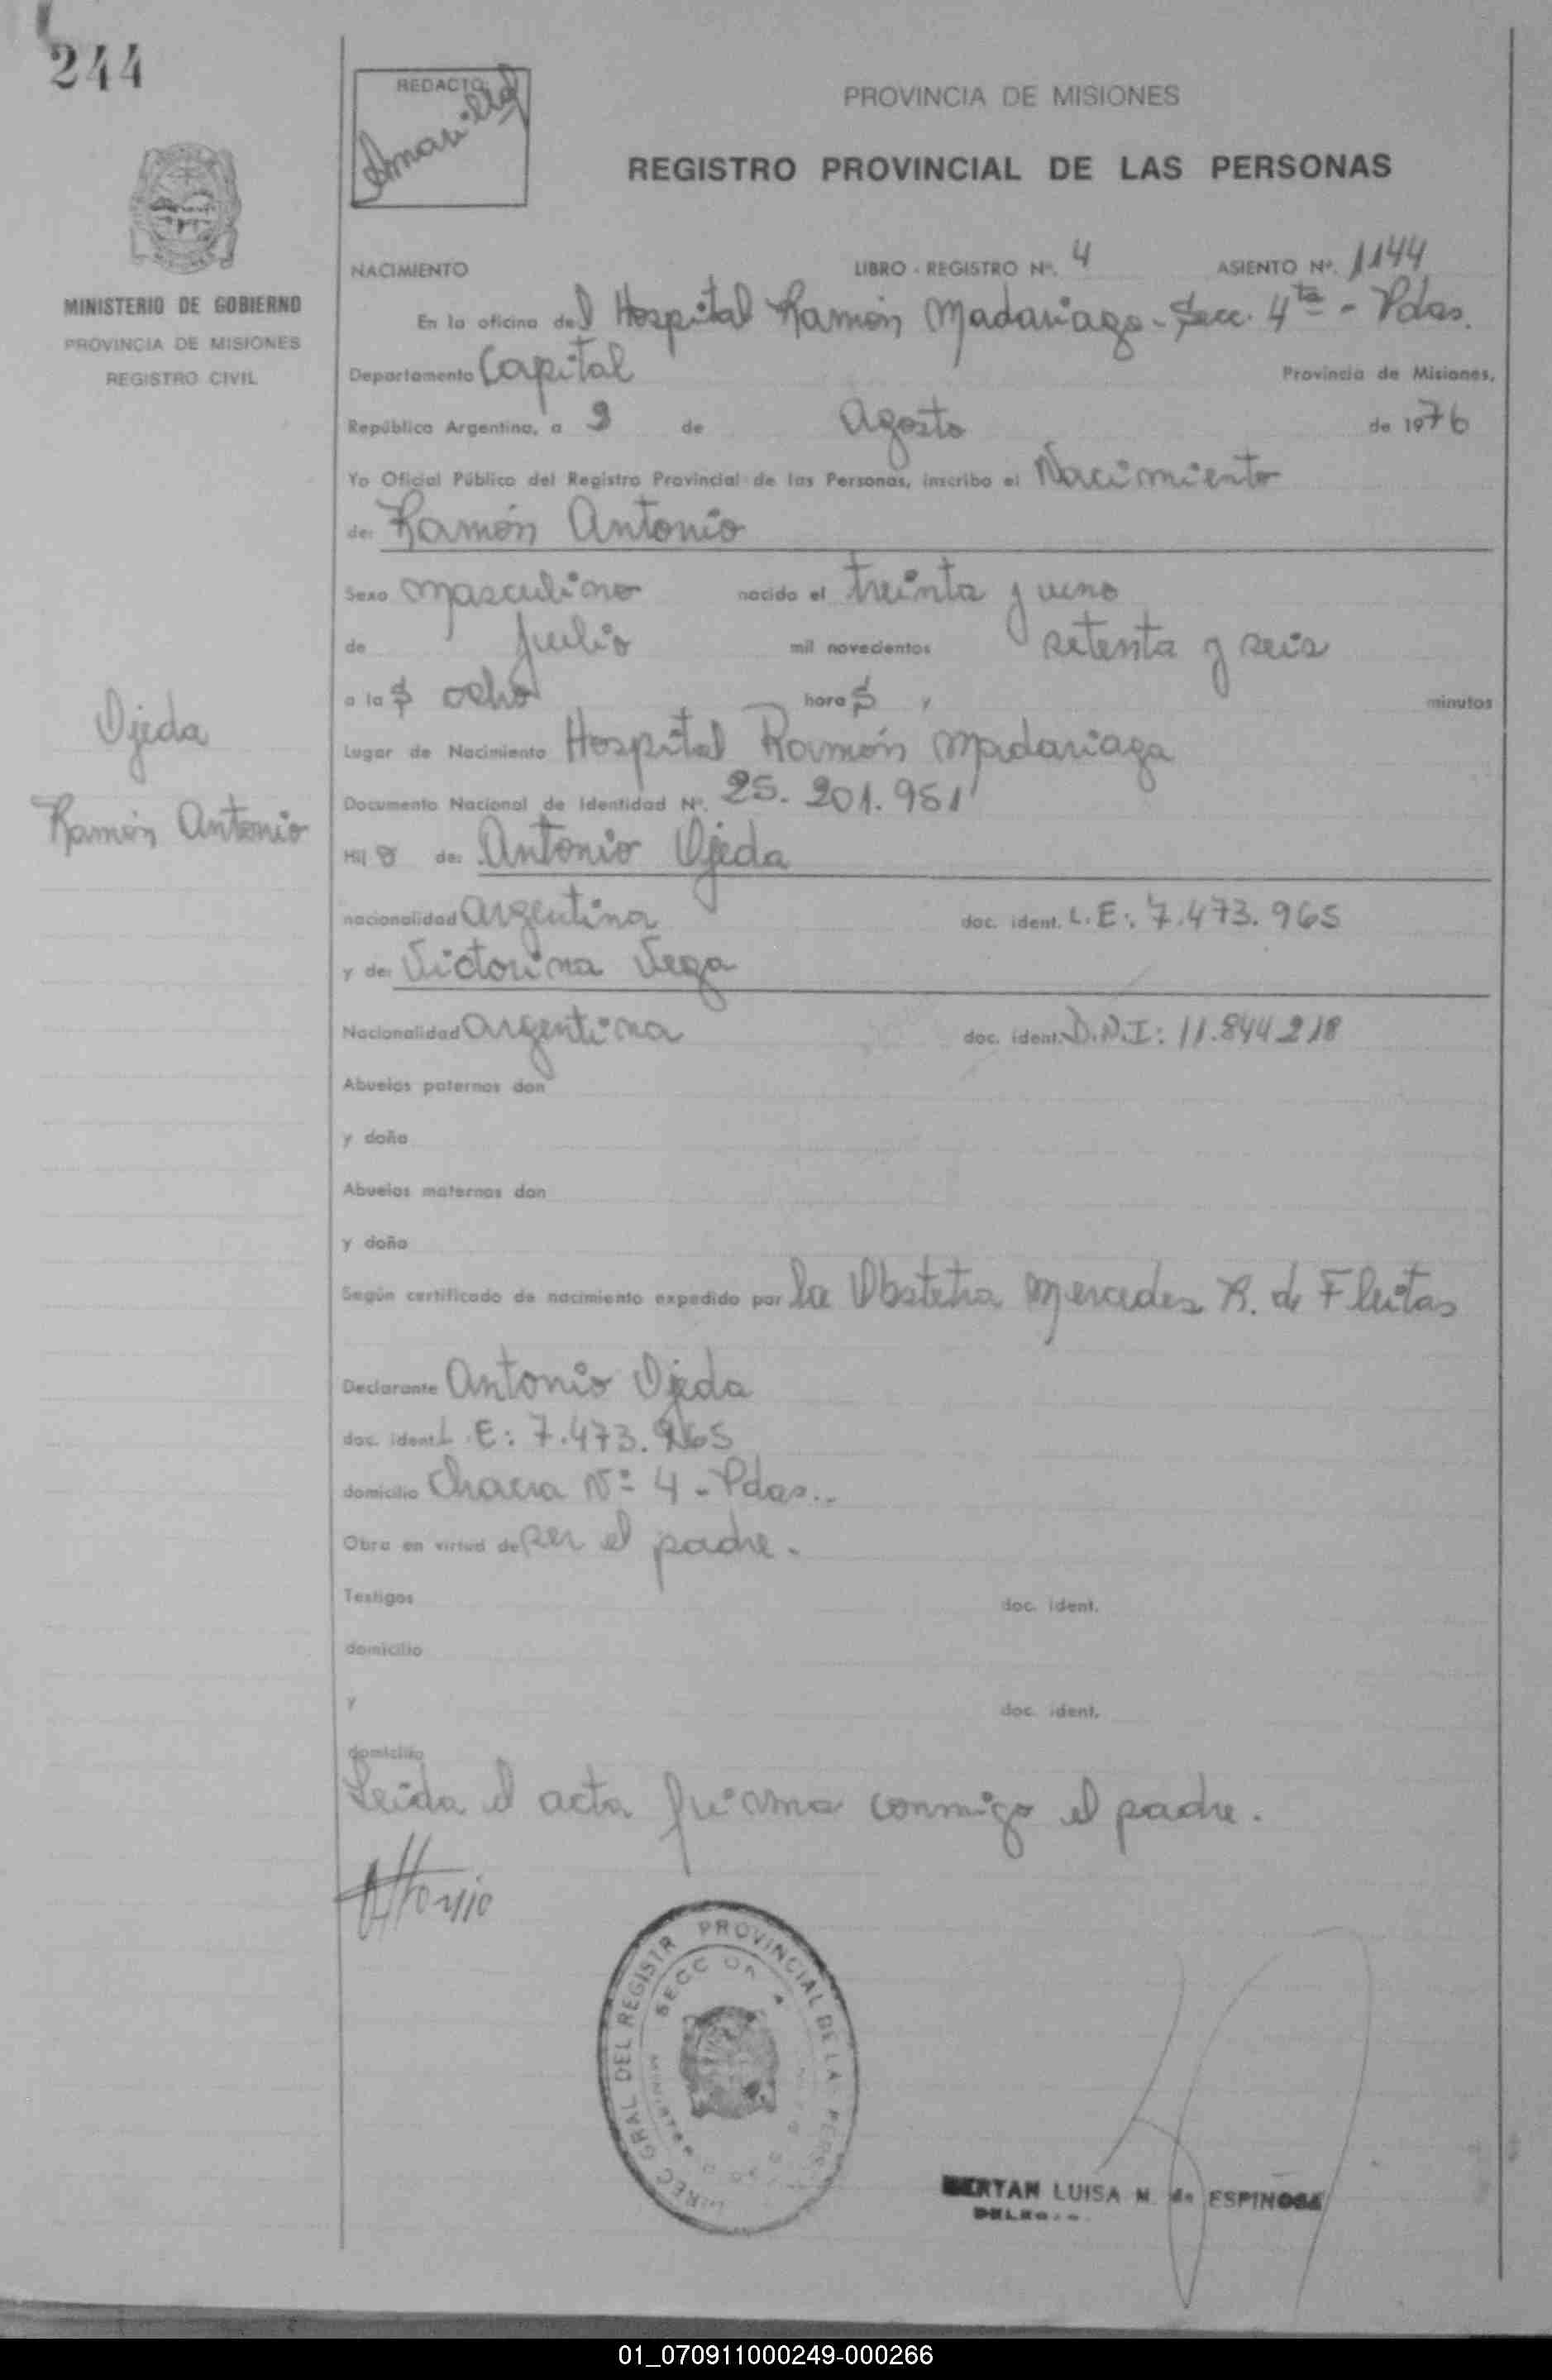 244
REDACTO:
Amarilla
PROVINCIA DE MISIONES
REGISTRO PROVINCIAL DE LAS PERSONAS
MINISTERIO DE GOBIERNO
PROVINCIA DE MISIONES
REGISTRO CIVIL
NACIMIENTO LIBRO - REGISTRO Nº. 4 ASIENTO Nº. 1144
En la oficina del Hospital Ramón Madariaga - Secc. 4ta - Pdas.
Departamento Capital Provincia de Misiones,
República Argentina, a 9 de Agosto de 1976
Yo Oficial Público del Registro Provincial de las Personas, inscribo el Nacimiento
de: Ramón Antonio
Sexo masculino nacido el treinta y uno
de Julio mil novecientos setenta y seis
a las ocho horas y minutos
Lugar de Nacimiento Hospital Ramón Madariaga
Documento Nacional de Identidad Nº. 25.201.951
Ojeda
Ramón Antonio
Hijo de: Antonio Ojeda
nacionalidad Argentina doc. ident. L.E: 7.473.965
y de: Victorina Vega
Nacionalidad Argentina doc. ident. D.N.I: 11.844.218
Abuelos paternos don
y doña
Abuelos maternos don
y doña
Según certificado de nacimiento expedido por la Obstetra Mercedes R. de Fleitas
Declarante Antonio Ojeda
doc. ident. L.E: 7.473.965
domicilio Chacra Nº 4 - Pdas..
Obra en virtud de ser el padre.
Testigos doc. ident.
domicilio
y doc. ident.
domicilio
Leida el acta firma conmigo el padre.
DIREC GRAL DEL REGISTR PROVINCIAL DE LA PERS
SECC 4
BERTAN LUISA M. de ESPINOSA
01_070911000249-000266